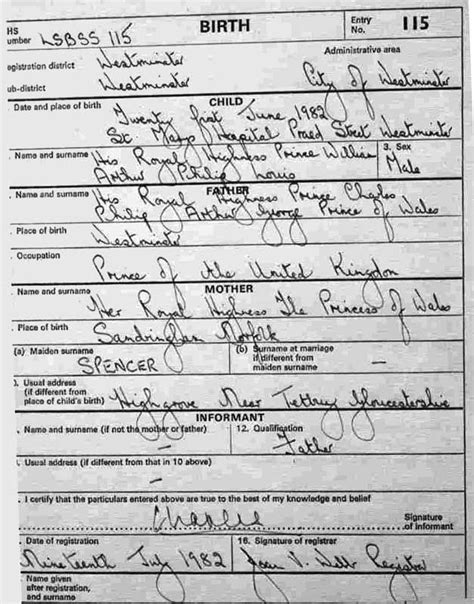 HS BIRTH Entry No. 115
number LSBSS 115 Administrative area
egistration district Westminster
ub-district Westminster City of Westminster
CHILD
. Date and place of birth Twenty first June 1982
St. Mary's Hospital Praed Street Westminster
. Name and surname His Royal Highness Prince William 3. Sex
Arthur Philip Louis Male
FATHER
. Name and surname His Royal Highness Prince Charles
Philip Arthur George Prince of Wales
. Place of birth Westminster
. Occupation
Prince of the United Kingdom
MOTHER
. Name and surname
Her Royal Highness The Princess of Wales
. Place of birth Sandringham Norfolk
(a) Maiden surname (b) Surname at marriage
SPENCER if different from
maiden surname —
. Usual address
(if different from
place of child's birth) Highgrove Near Tetbury Gloucestershire
INFORMANT
. Name and surname (if not the mother or father) 12. Qualification
— Father
Usual address (if different from that in 10 above)
—
. I certify that the particulars entered above are true to the best of my knowledge and belief
Charles Signature
of informant
. Date of registration 16. Signature of registrar
Nineteenth July 1982 Joan V. Webb Registrar
Name given
after registration,
and surname